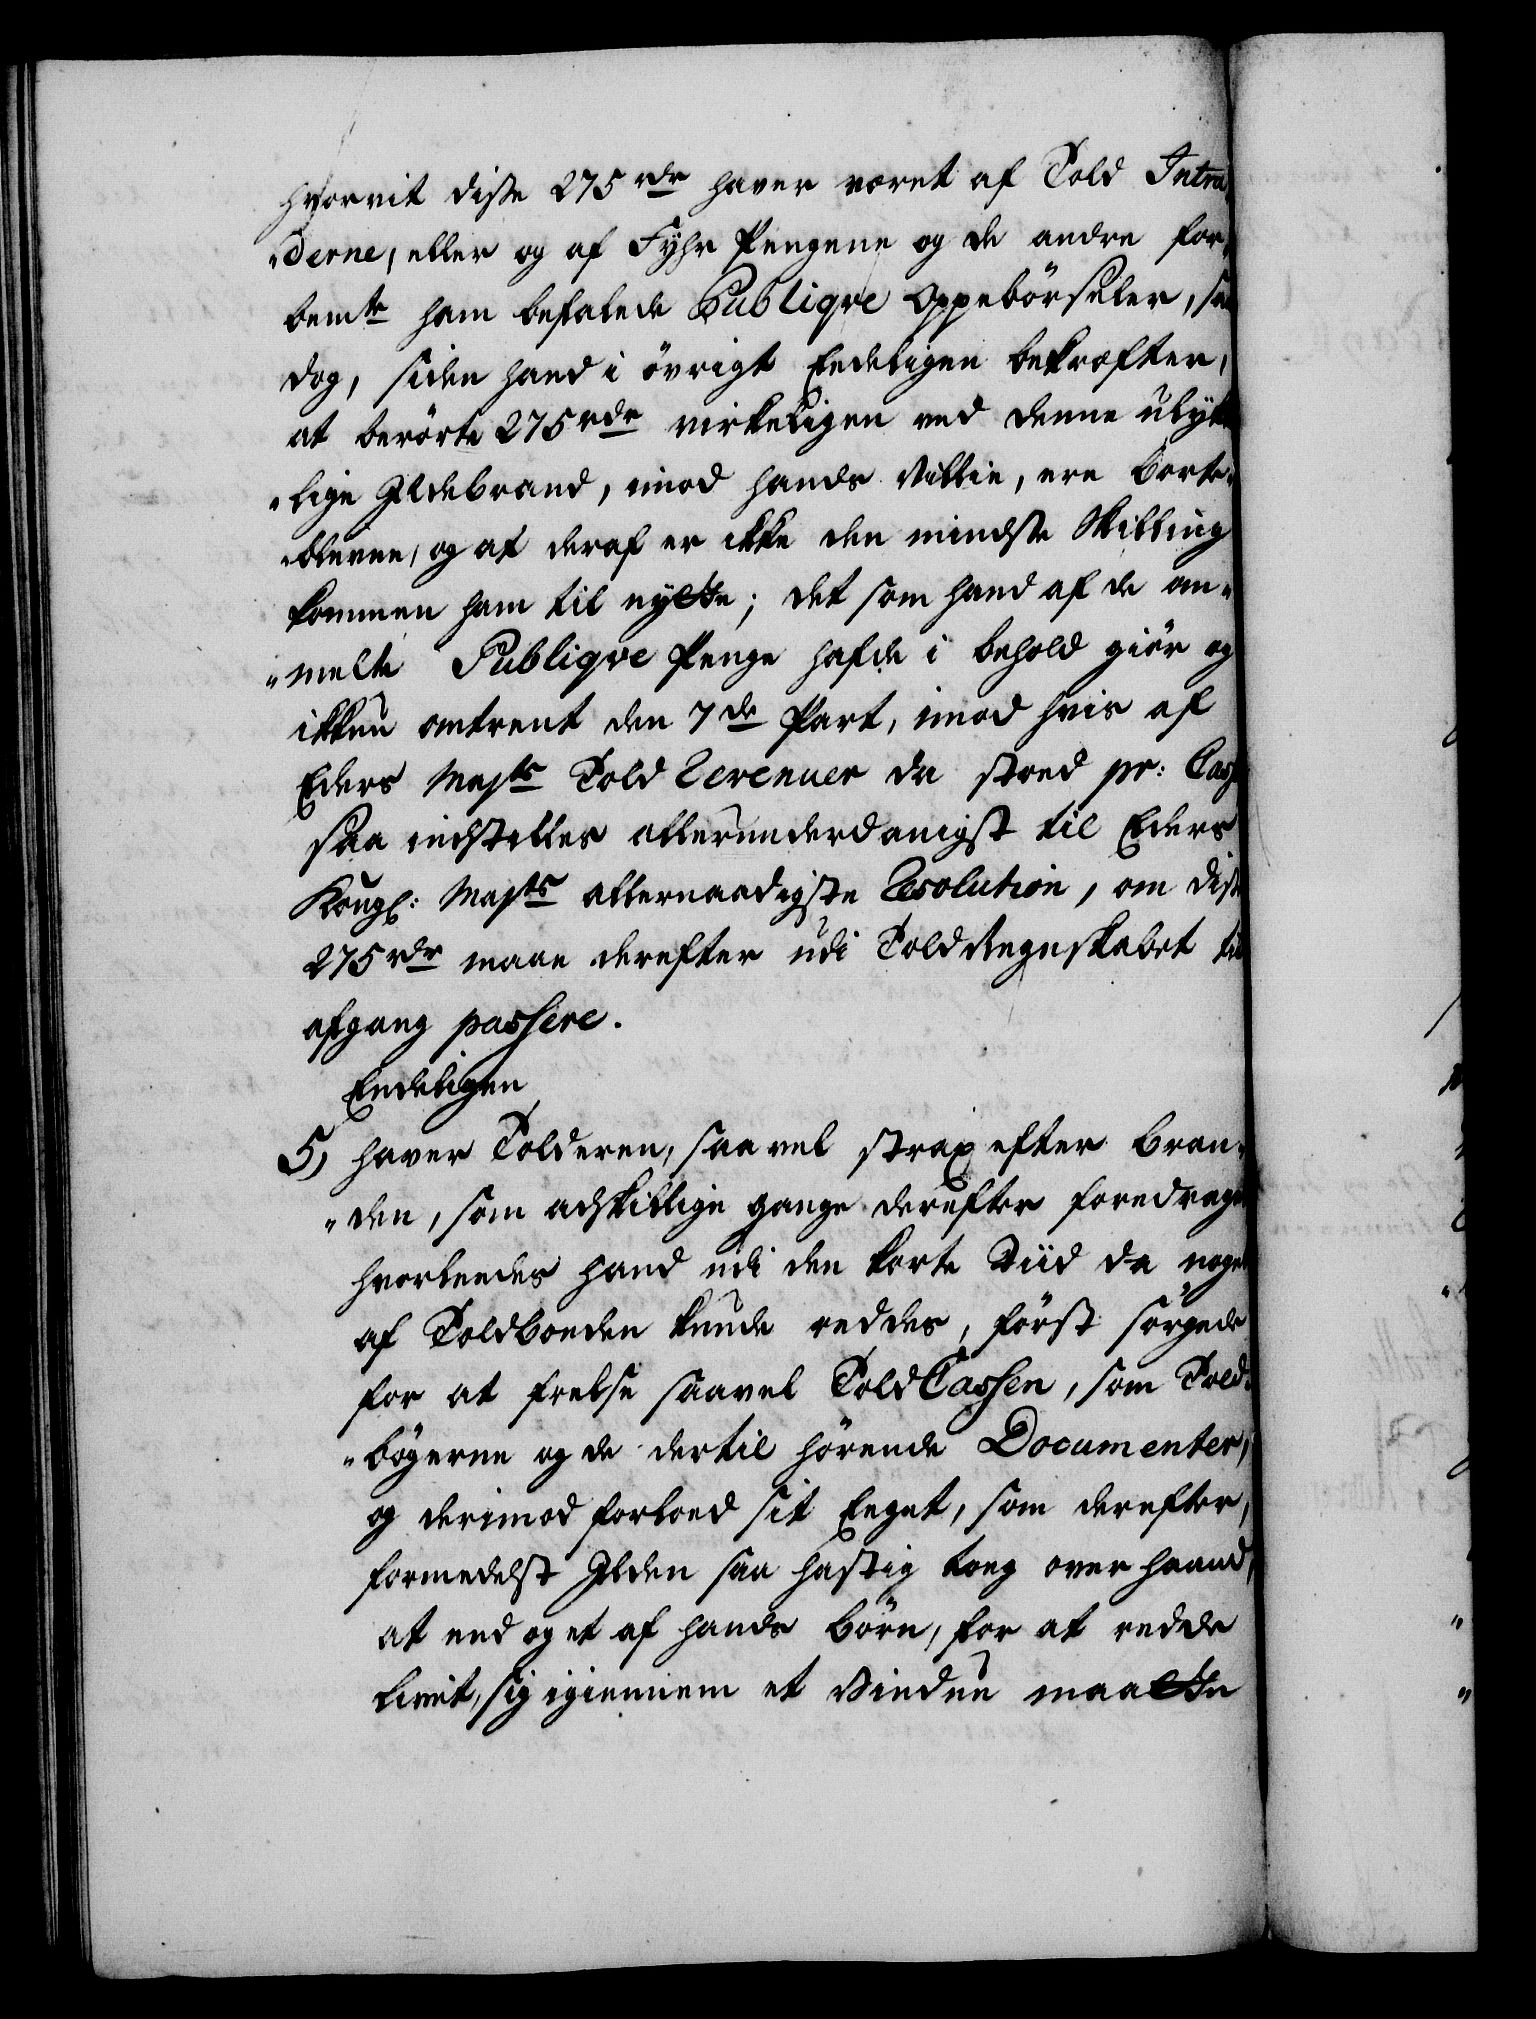 hvorvit disse 275 rdr haver været af Told Intra
„derne, eller og af Fyhr Pengene og de andre for„
bemte ham befalede Publiqve Oppebörseler, saa
dog, siden hand i övrigt Eedeligen bekræfter,
at berörte 275 rdr virkeligen ved denne ulyk
„lige Ildebrand, imod hands Villie, ere borte„
„blevne, og at deraf er ikke den mindste Skilling
kommen ham til nytte; det som hand af de an„
„melte Publiqve Penge hafde i behold giör og
ikkun omtrent den 7de Part, imod hvis af
Eders Mayts Told Revenuer da stoed pr: Cassa
saa indstilles allerunderdanigst til Eders
Kongl: Mayts allernaadigste Resolution, om disse
275 rdr maae derefter udi Told Regnskabet til
afgang passere.
Endeligen
5) haver Tolderen, saavel strax efter bran„
„den, som adskillige gange derefter foredraget
hvorleedes hand udi den korte Tiid da noget
af Toldboeden kunde reddes, först sörgede
for at frelse saavel Told Cassen, som Told„
„bögerne og de dertil hörende Documenter,
og derimod forloed sit Eeget, som derefter,
formedelst Ilden saa hastig toeg overhaand,
at end og et af hands börn, for at redde
livet, sig igiennem et Vindue maatte